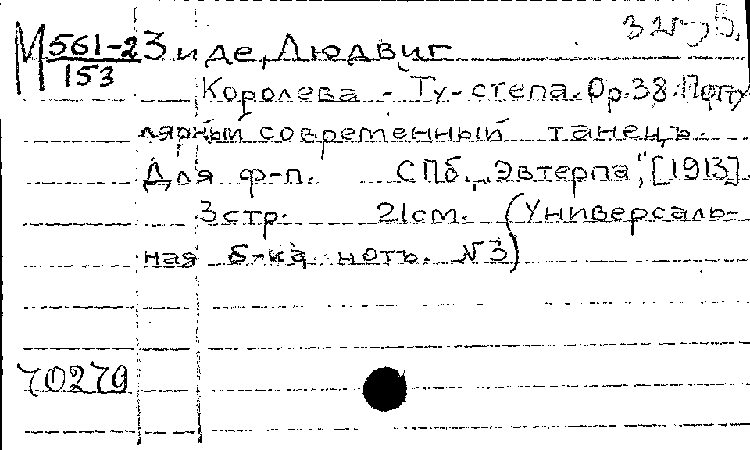 М 561-2 Зиде, Людвиг
153
Королева - Ту-степа. Op. 38. Попу
лярный современный танецъ.
Для ф-п. СПб., "Эвтерпа", [1913].
3 стр. 21 см. (Универсаль-
ная б-ка нотъ. N 3)
70270